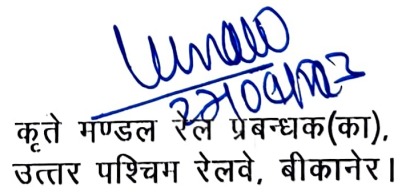 कृते मण्डल रेल प्रबन्धक(का),
उत्तर पश्चिम रेलवे, बीकानेर।